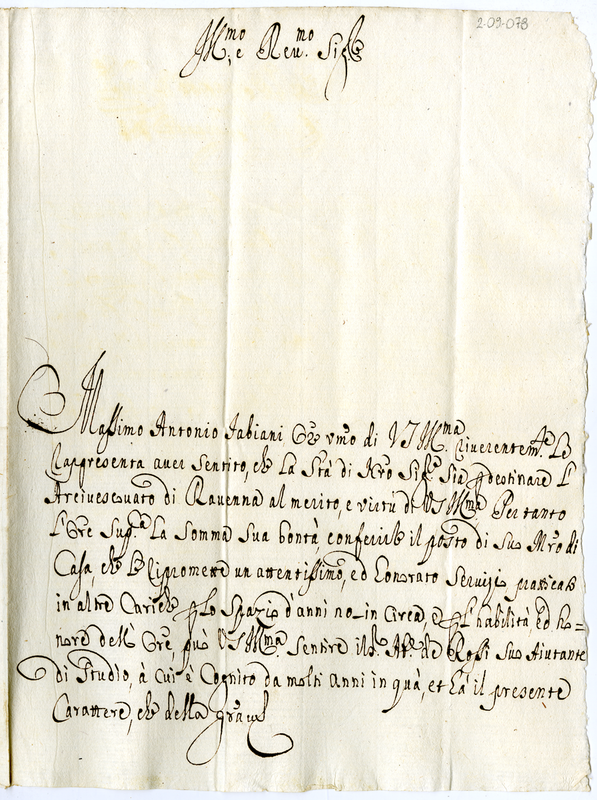 2-09-078
Ill.mo e Reu.mo Sig.re
Massimo Antonio Fabiani Ore vmo di VS Ill.ma riuerentem.te Le
rappresenta auer sentito, che La Stà di Nro Sig.re sia p destinare L'
Arciuescouato di Rauenna al merito, e virtù di VS Ill.ma Per tanto
L'Ore sup.ca La somma sua bontà, conferirli il posto di suo Mro di
Casa, che Le ripromette un attentissimo, ed honorato seruizio, praticato
in altre Cariche p Lo spazio d'anni in circa, e p L'habilità, ed ho=
nore dell' Ore, può VS Ill.ma sentire il de Rossi suo Aiutante
di Studio, à cui è Cognito da molti anni in quà, et hà il presente
Carattere, che della